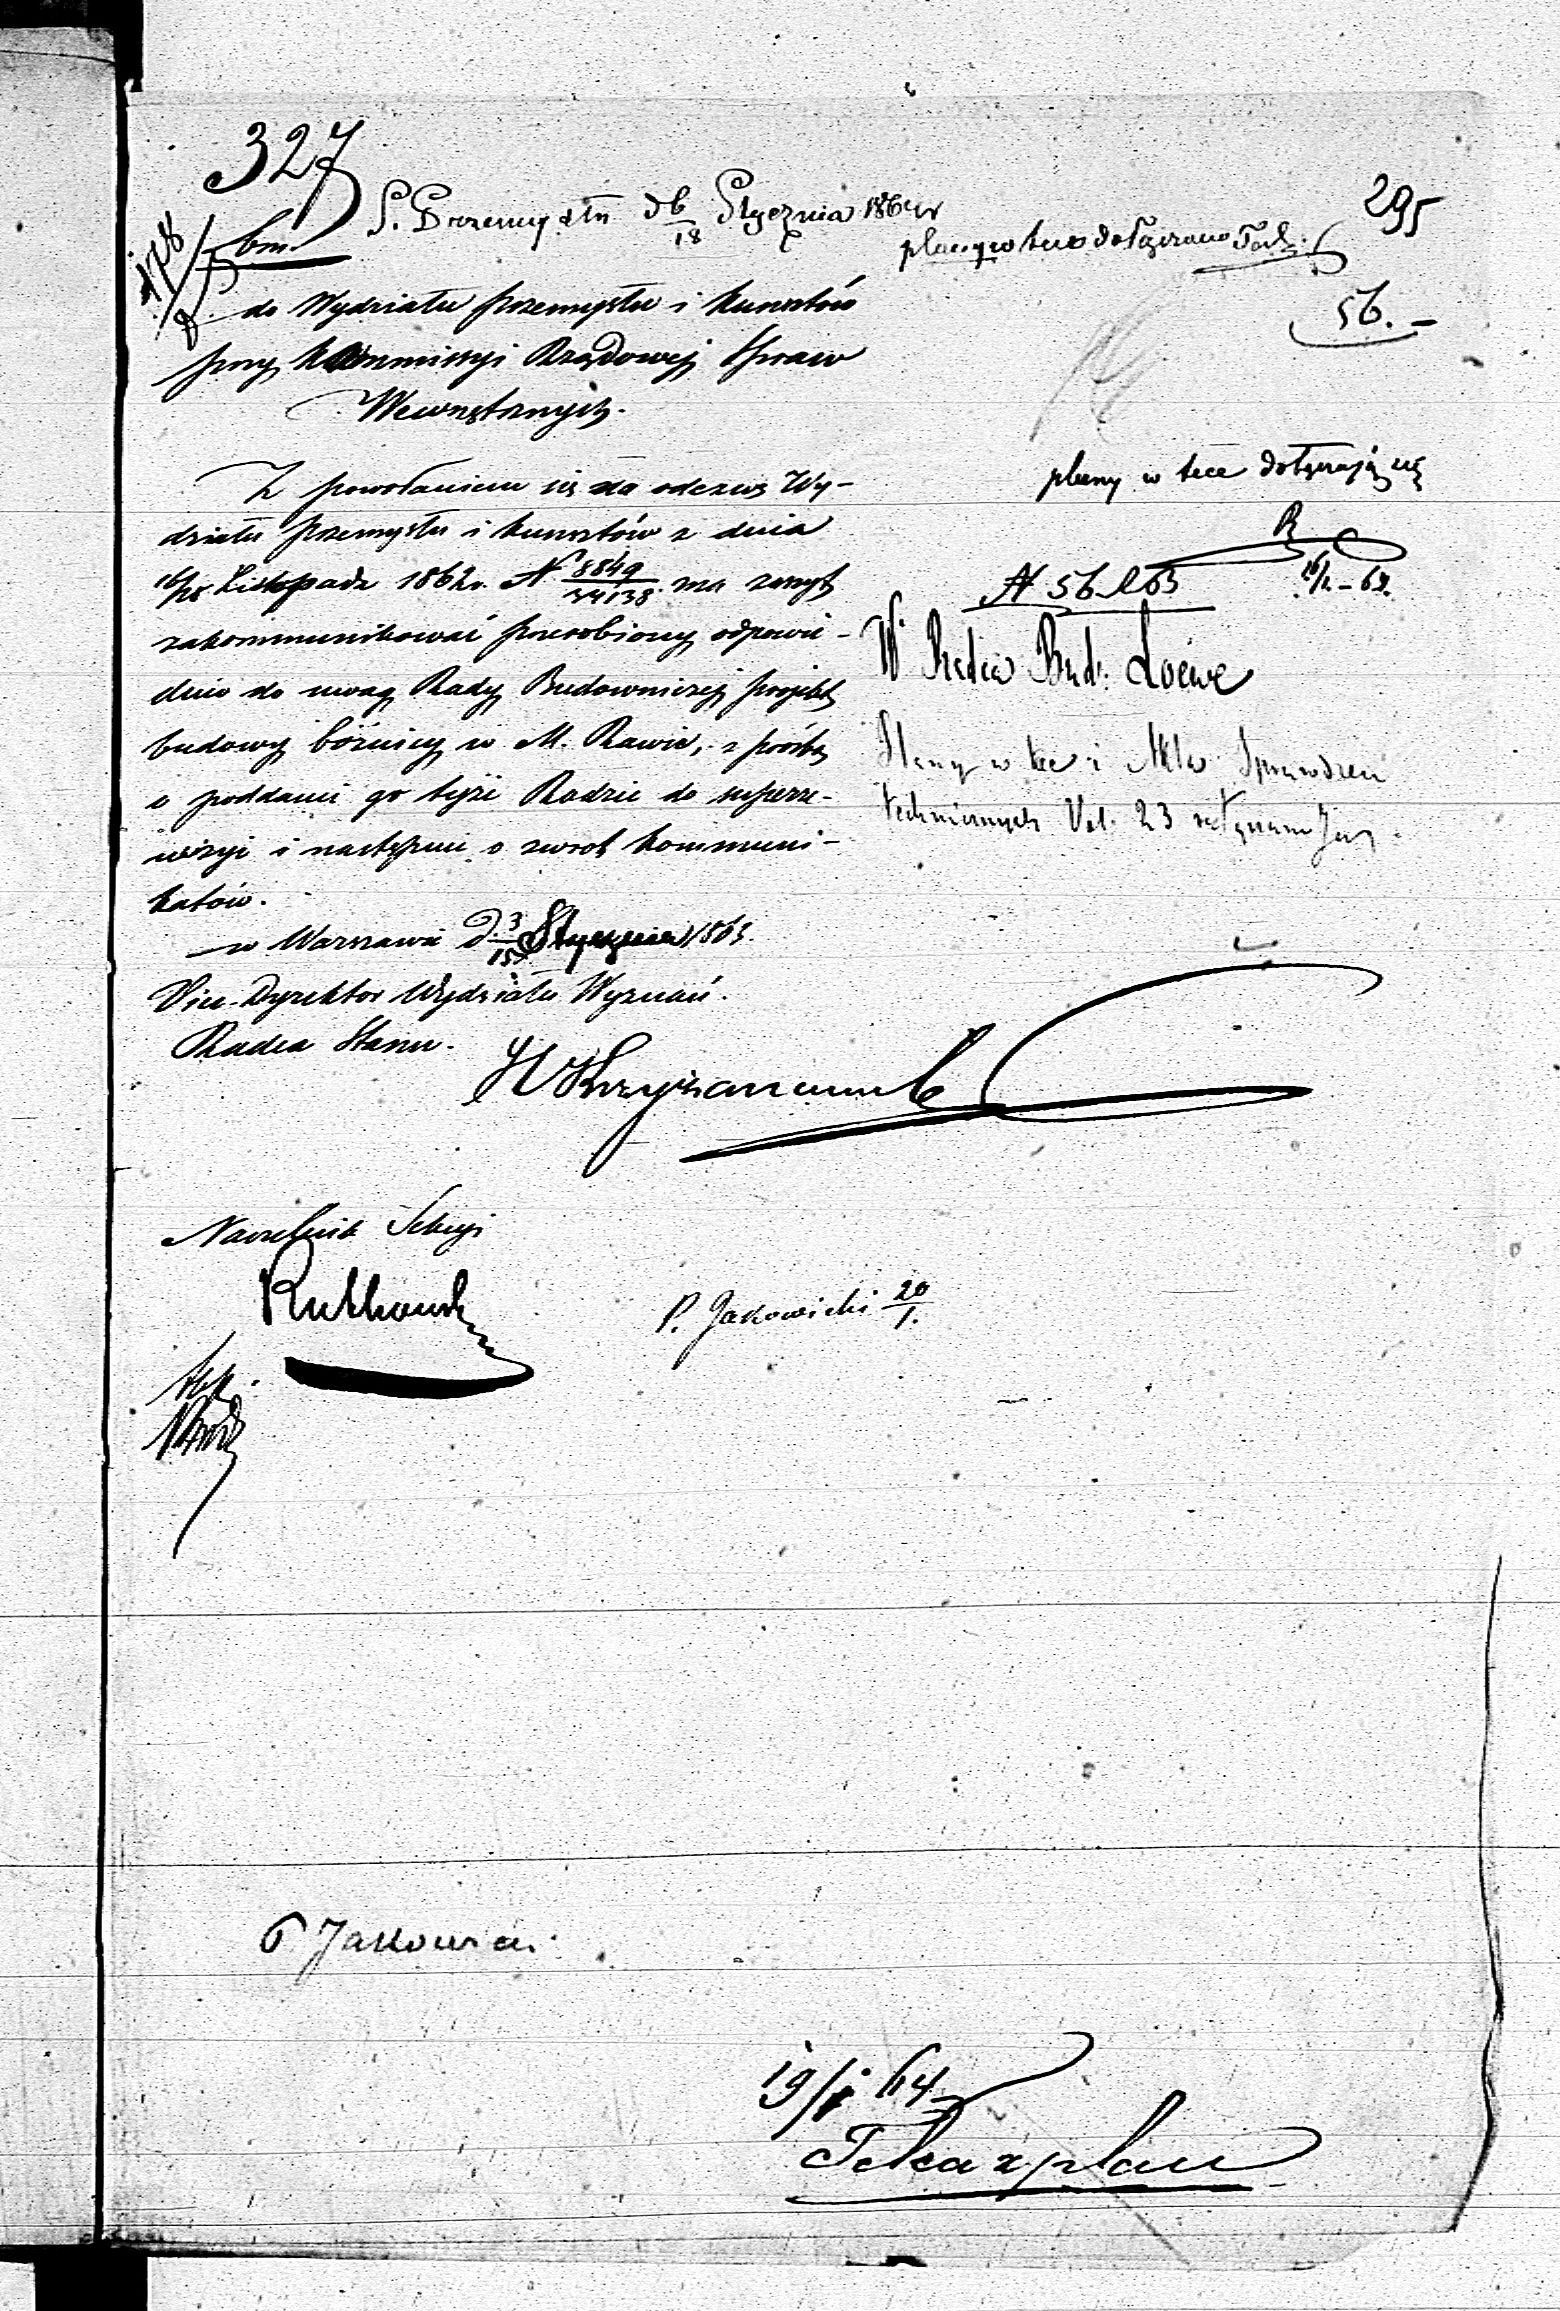 327
295
S. Przemysłu d 6/18 Stycznia 1864 r
plany w tece dołączono
56. –
do Wydziału przemysłu i kunsztów
przy Kommissyi Rządowej Spraw
Wewnętrznych.
Z powołaniem się na odezwę Wy-
działu przemysłu i kunsztów z dnia
16/28 Listopada 1862 r. N 8849/34138. ma zaszczyt
zakommunikować przerobiony odpowie-
dnio do uwag Rady Budowniczej projekt
budowy bóżnicy w M. Rawie, z prośbą
o poddanie go tejże Radzie do superre-
wizyi i następnie o zwrot kommuni-
katów.
w Warszawie d. 3/15 Stycznia 1863.
Vice-Dyrektor Wydziału Wyznań.
Radca Stanu.
H Krzyżanowski
plany w tece dołączają się
R
N 56 863
W Radca Bud: Loewe
Plany w tece i Akta Sprawdzeń
technicznych Vol. 23 załączam
Naczelnik Sekcyi
Rutkowski
P. Jakowicki 20/1.
P Jakowicki
19/1 64
Teka z plan